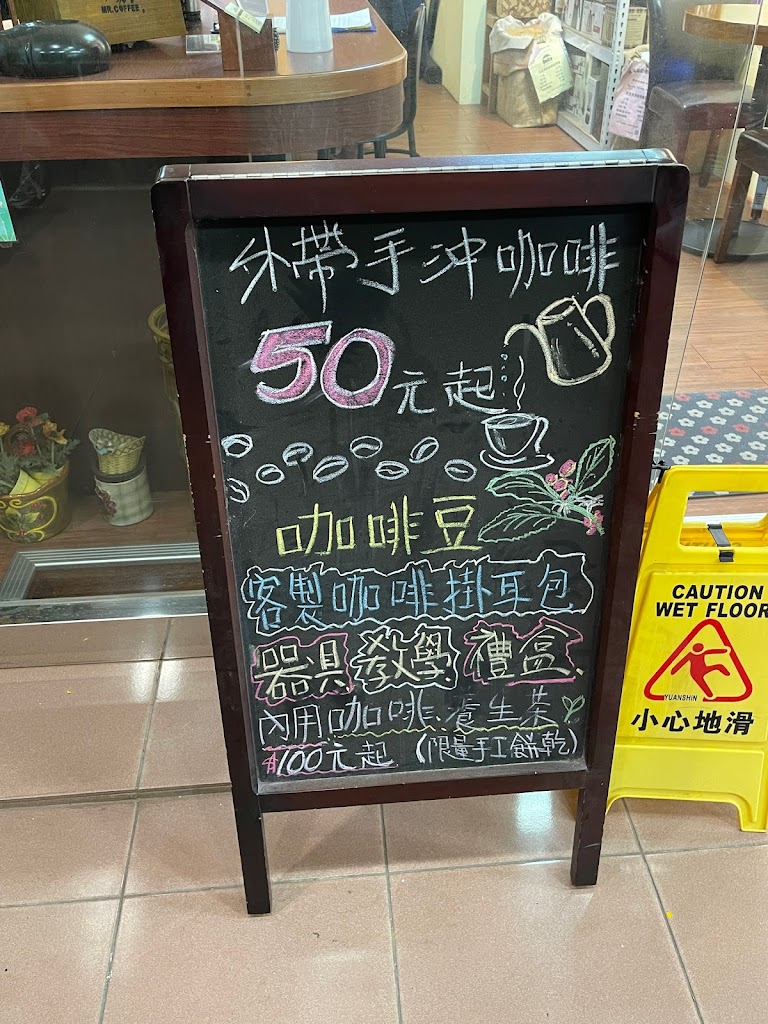 MR.COFFEE
外帶手沖咖啡
50元起
咖啡豆
客製咖啡掛耳包
器具 教學 禮盒、
內用咖啡、養生茶
$100元起 (限量手工餅乾)
CAUTION
WET FLOOR
YUANSHIN
小心地滑